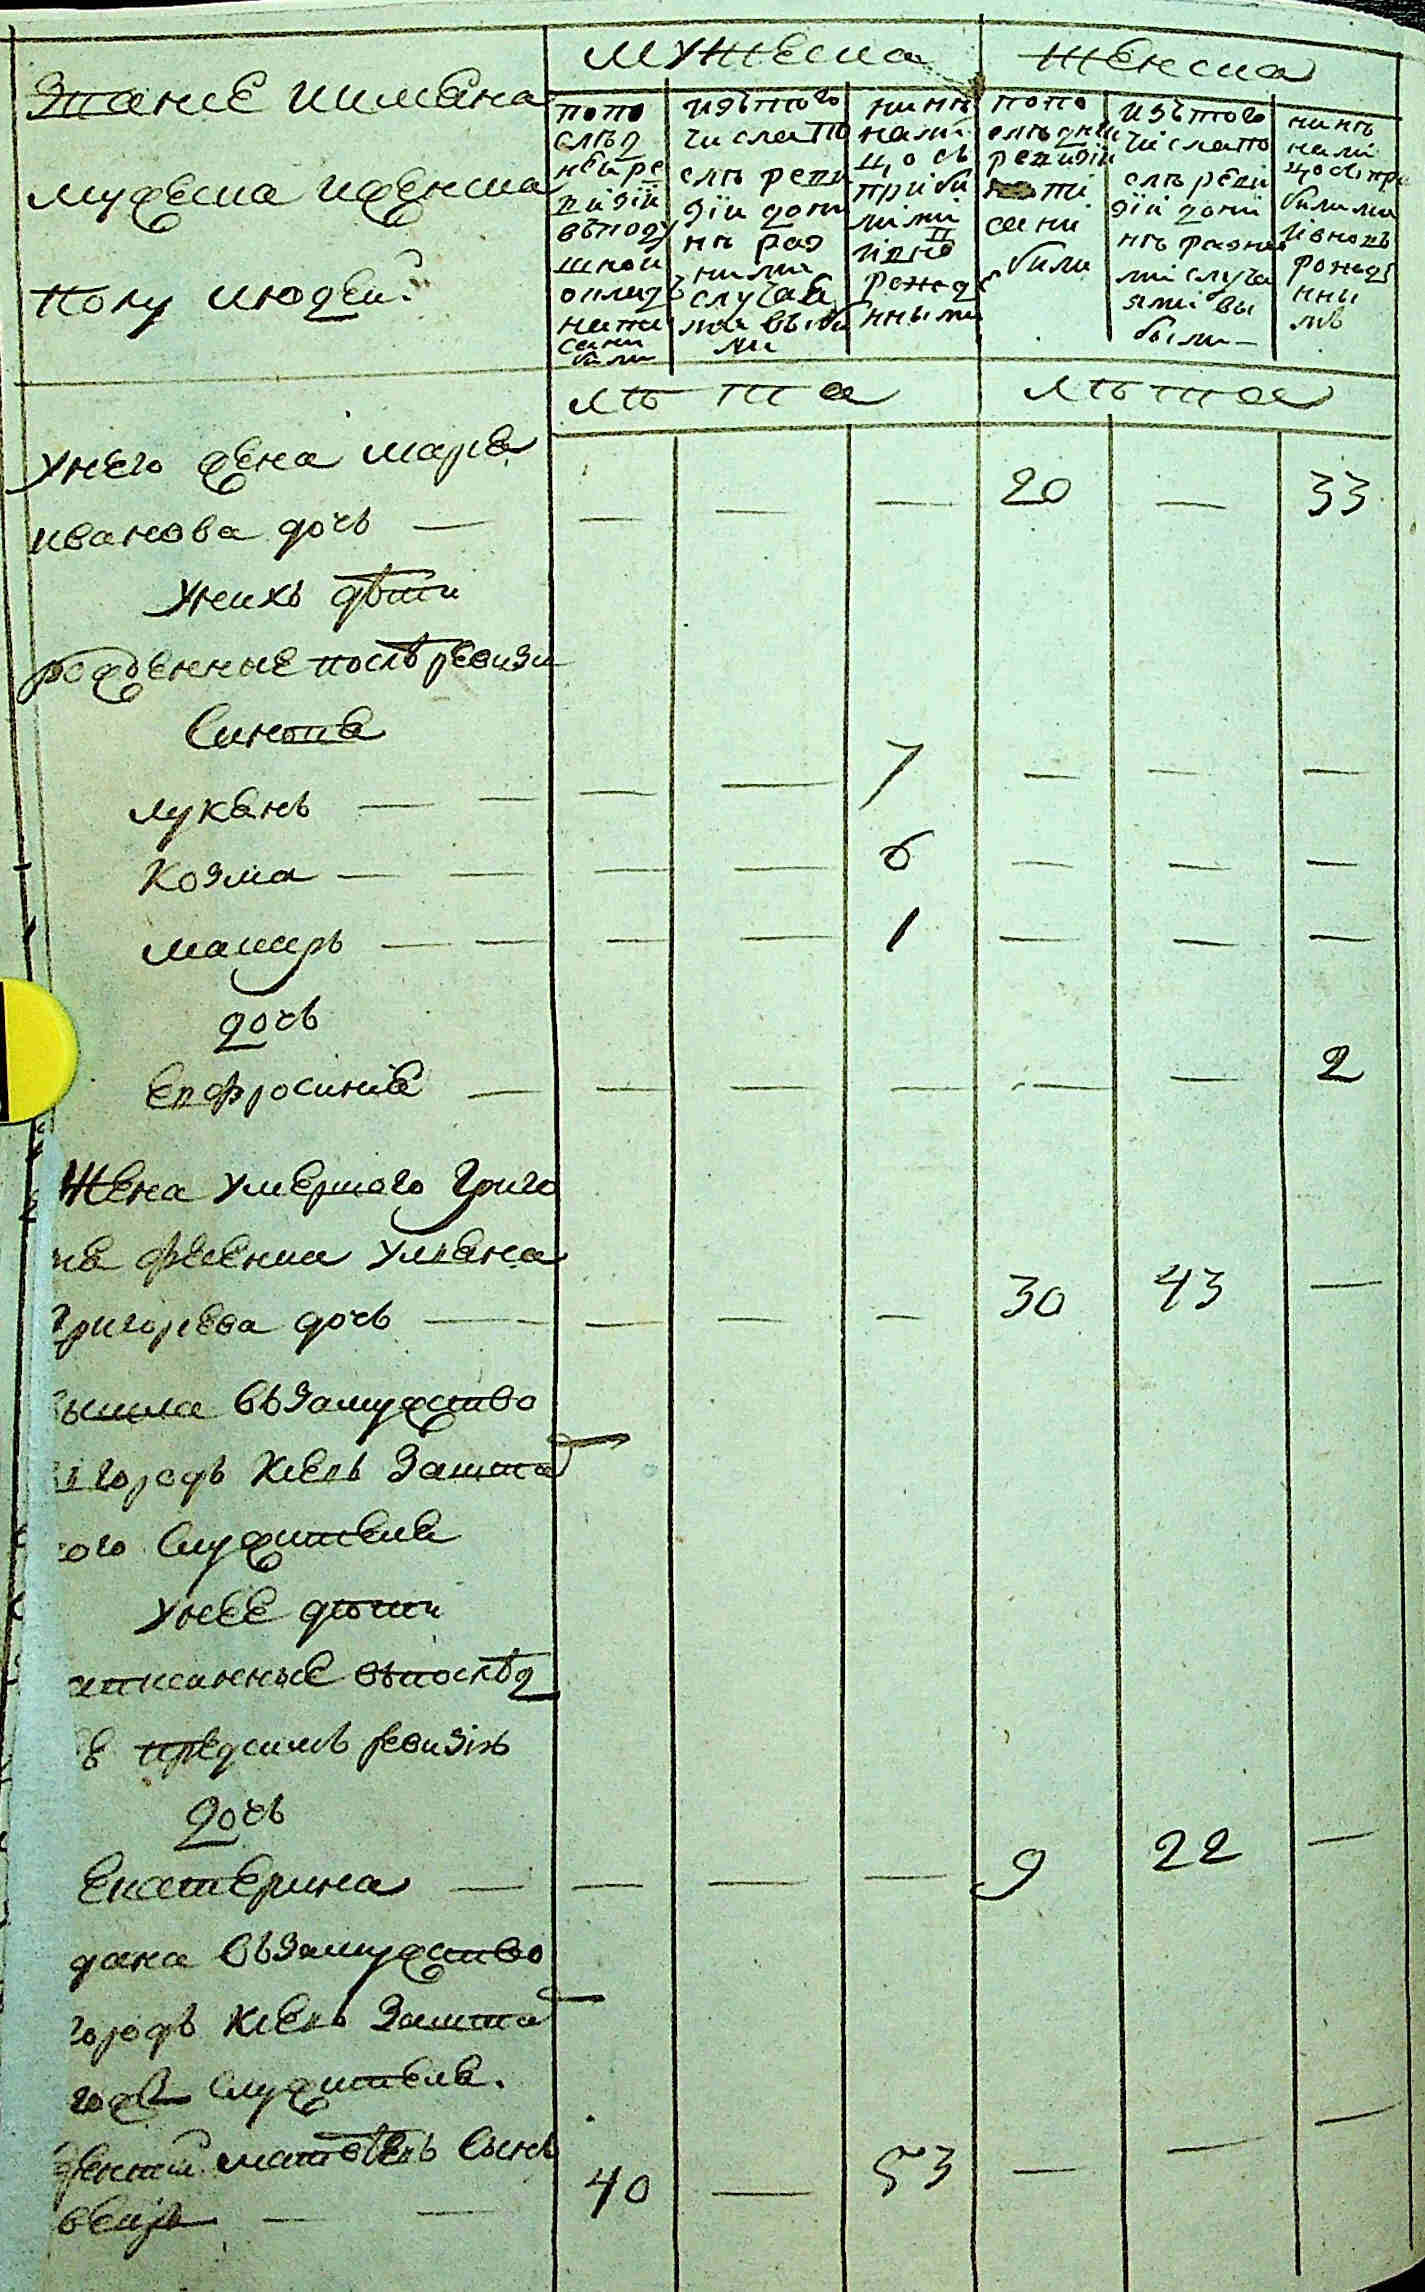 Званіе иимена
мужеска иженска
полу людей:
мужеска
женска
попо
слѣд
ней ре
визіи
въподу
шной
окладъ
напи
сани
били
изътого
числапо
слѣ реви
зіи дони
нѣ раз
ними
случая
ми выбы
ли
нинѣ
нали
цо съ
приби
лими
ивно
рожде
нными
попо
слѣдней
ревизіи
напи
сани
били
изътого
числапо
слѣ реви
зіи дони
нѣ разны
ми случа
ями вы
были
нинѣ
нали
цосъпри
билими
ивновъ
рожде
нны
ми
лѣта
лѣта
Унего жена Марѳа
Иванова дочь — — — — 20 — 33
Унихъ дѣти
рожденные послѣ ревизи
Синове
Лукянъ — — — — 7 — — —
Козма — — — — 6 — — —
— — — — 1 — — —
дочь
Евфросиніе — — — — — — 2
Жена умершого Григо
Уляна
Григорьева дочь — — — — — 30 43 —
вышла взамужство
в городъ Кіевъ Зашта
ого служителя
Унее дѣти
аписанные въпослѣд
е предсимъ ревизіи
дочь
Екатерина — — — — 9 22 —
дана взамужство
городъ Кіевъ Зашта
служителя.
Матвѣевъ сынъ
— — 40 — 53 — — —